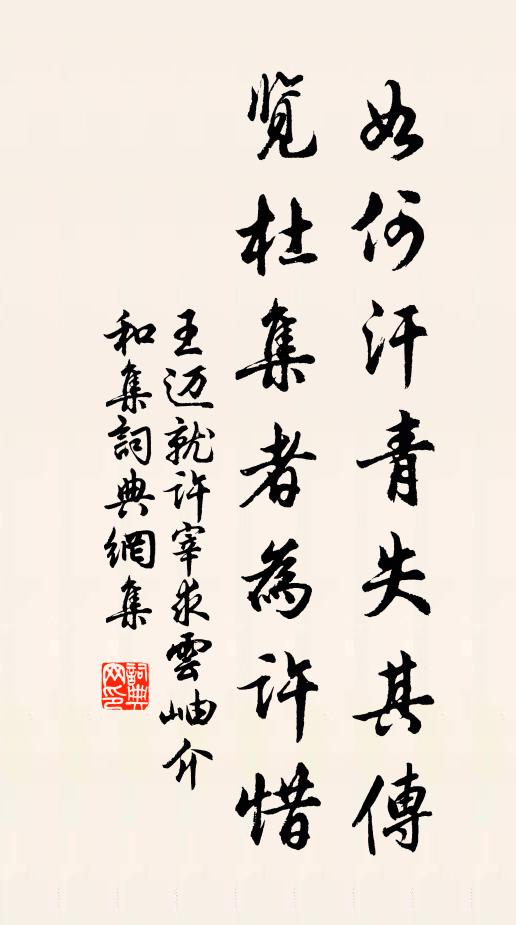 如何汗青失其傳
覽杜集者為許惜
王迈就许宰求雲岫介
和集詞典網集
詞典網印